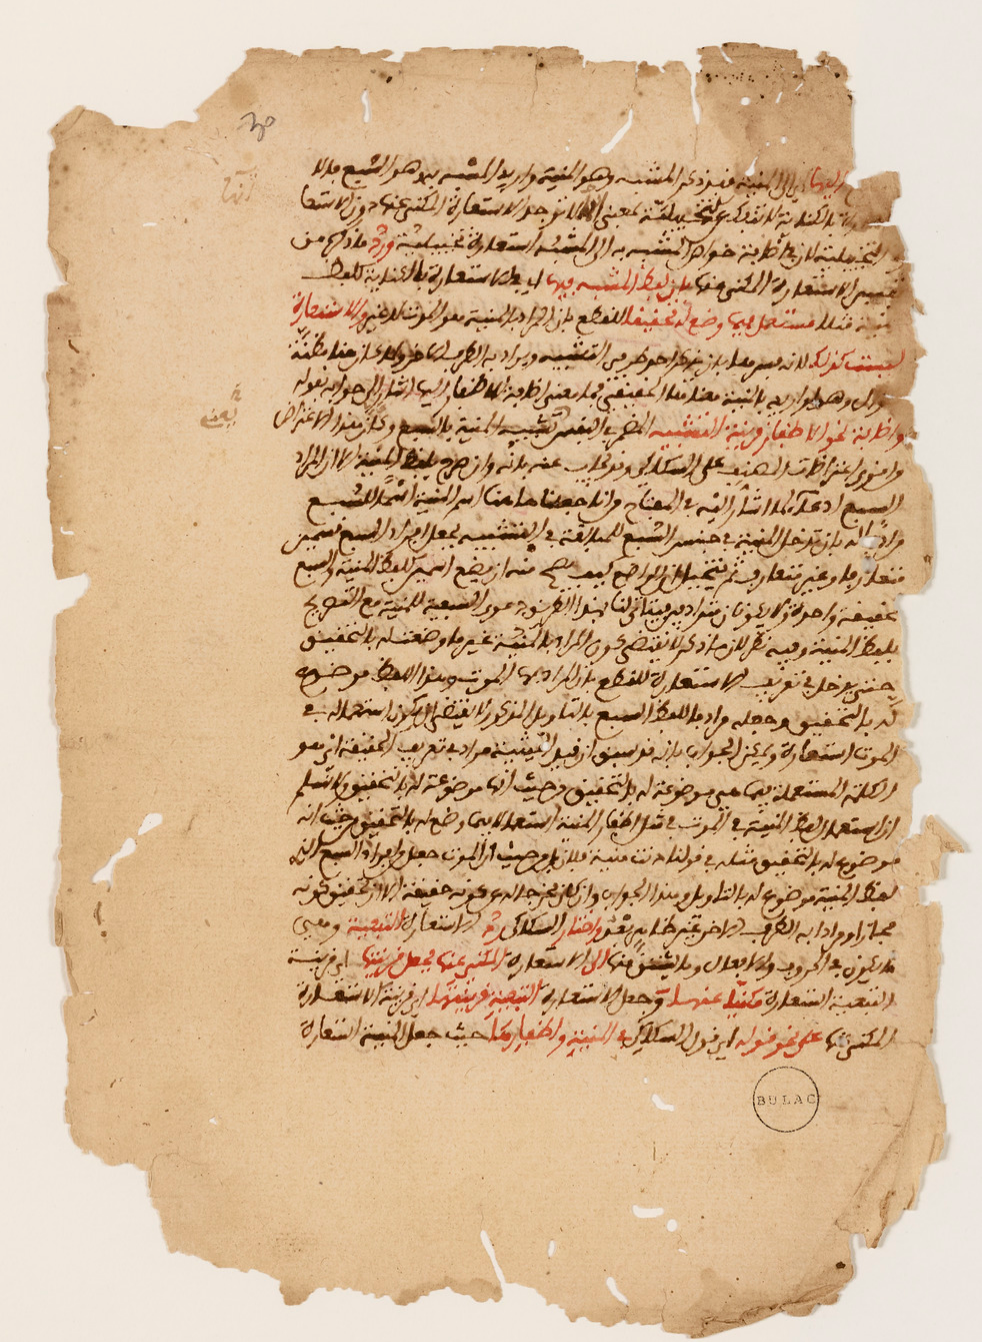 اليها اي الى المنية فقد ذكر المشبه وهو المنية واريد المشبه به وهو السبع فالا
بالكناية لا تنفك عن التخييلية بمعنى انه لا توجد الاستعارة المكنى عنها دون الاستعا
التخييلية لان في اضافة خواص المشبه به الى المشبه استعارة تخييلية ورد ما ذكره من
تفسير الاستعارة المكنى عنها بان لفظ المشبه فيها اي في الاستعارة بالكناية كلفظ
منية مثلا مستعمل فيما وضع له تحقيقا للقطع بان المراد بالمنية هو الموت لا غير والاستعارة
ليست كذلك لانه فسرها بان يذكر احد طرفي التشبيه ويراد به الطرف الاخر ولما كان هنا مظنة
سؤال وهو لو اريد بالمنية معناها الحقيقي فما معنى اضافة الاظفار اليها اشار الى جوابه بقوله
واضافة نحو الاظفار قرينة التشبيه المضمر في النفس تشبيه المنية بالسبع وكان هذا الاعتراض
يعني
من اقوى اعتراضات المصنف على السكاكي وقد يجاب عنه بانه وان صرح بلفظ المنية الا ان المراد
السبع ادعاء كما اشار اليه في المفتاح من انا نجعل هاهنا اسم المنية اسما للسبع
مرادفا له بان ندخل المنية في جنس السبع للمبالغة في التشبيه بجعل افراد السبع قسمين
متعارفا وغير متعارف ثم يتخيل ان الواضع كيف يصح منه ان يضع اسمين كلفظ المنية والسبع
لحقيقة واحدة ولا يكونان مترادفين فيتاتى لنا بهذا الطريق دعوى السبعية للمنية مع التصريح
بلفظ المنية وفيه نظر لان ما ذكره لا يقتضي كون المراد بالمنية غير ما وضعت له بالتحقيق
حتى يدخل في تعريف الاستعارة للقطع بان المراد بها الموت وهذا اللفظ موضوع
له بالتحقيق وجعله مرادفا للفظ السبع بالتاويل المذكور لا يقتضي ان يكون استعماله في
الموت استعارة ويمكن الجواب بانه قد سبق ان قيد الحيثية مراد في تعريف الحقيقة اي هو
الكلمة المستعملة فيما هي موضوعة له بالتحقيق من حيث انها موضوعة له بالتحقيق ولا نسلم
ان استعمال لفظ المنية في الموت في مثل اظفار المنية استعمال فيما وضع له بالتحقيق من حيث انه
موضوع له بالتحقيق مثله في قولنا دنت منية فلان بل من حيث ان الموت جعل من افراد السبع الذي
لفظ المنية موضوع له بالتاويل وهذا الجواب وان كان مخرجا له عن كونه حقيقة الا ان تحقيق كونه
مجازا ومرادا به الطرف الاخر غير ظاهر بعد واختار السكاكي رد الاستعارة التبعية وهي
ما يكون في الحروف والافعال وما يشتق منها الى الاستعارة المكنى عنها بجعل قرينتها اي قرينة
التبعية استعارة مكنيا عنها وجعل الاستعارة التبعية قرينتها اي قرينة الاستعارة
المكنى عنها على نحو قوله اي قول السكاكي في المنية واظفارها حيث جعل المنية استعارة
BULAC